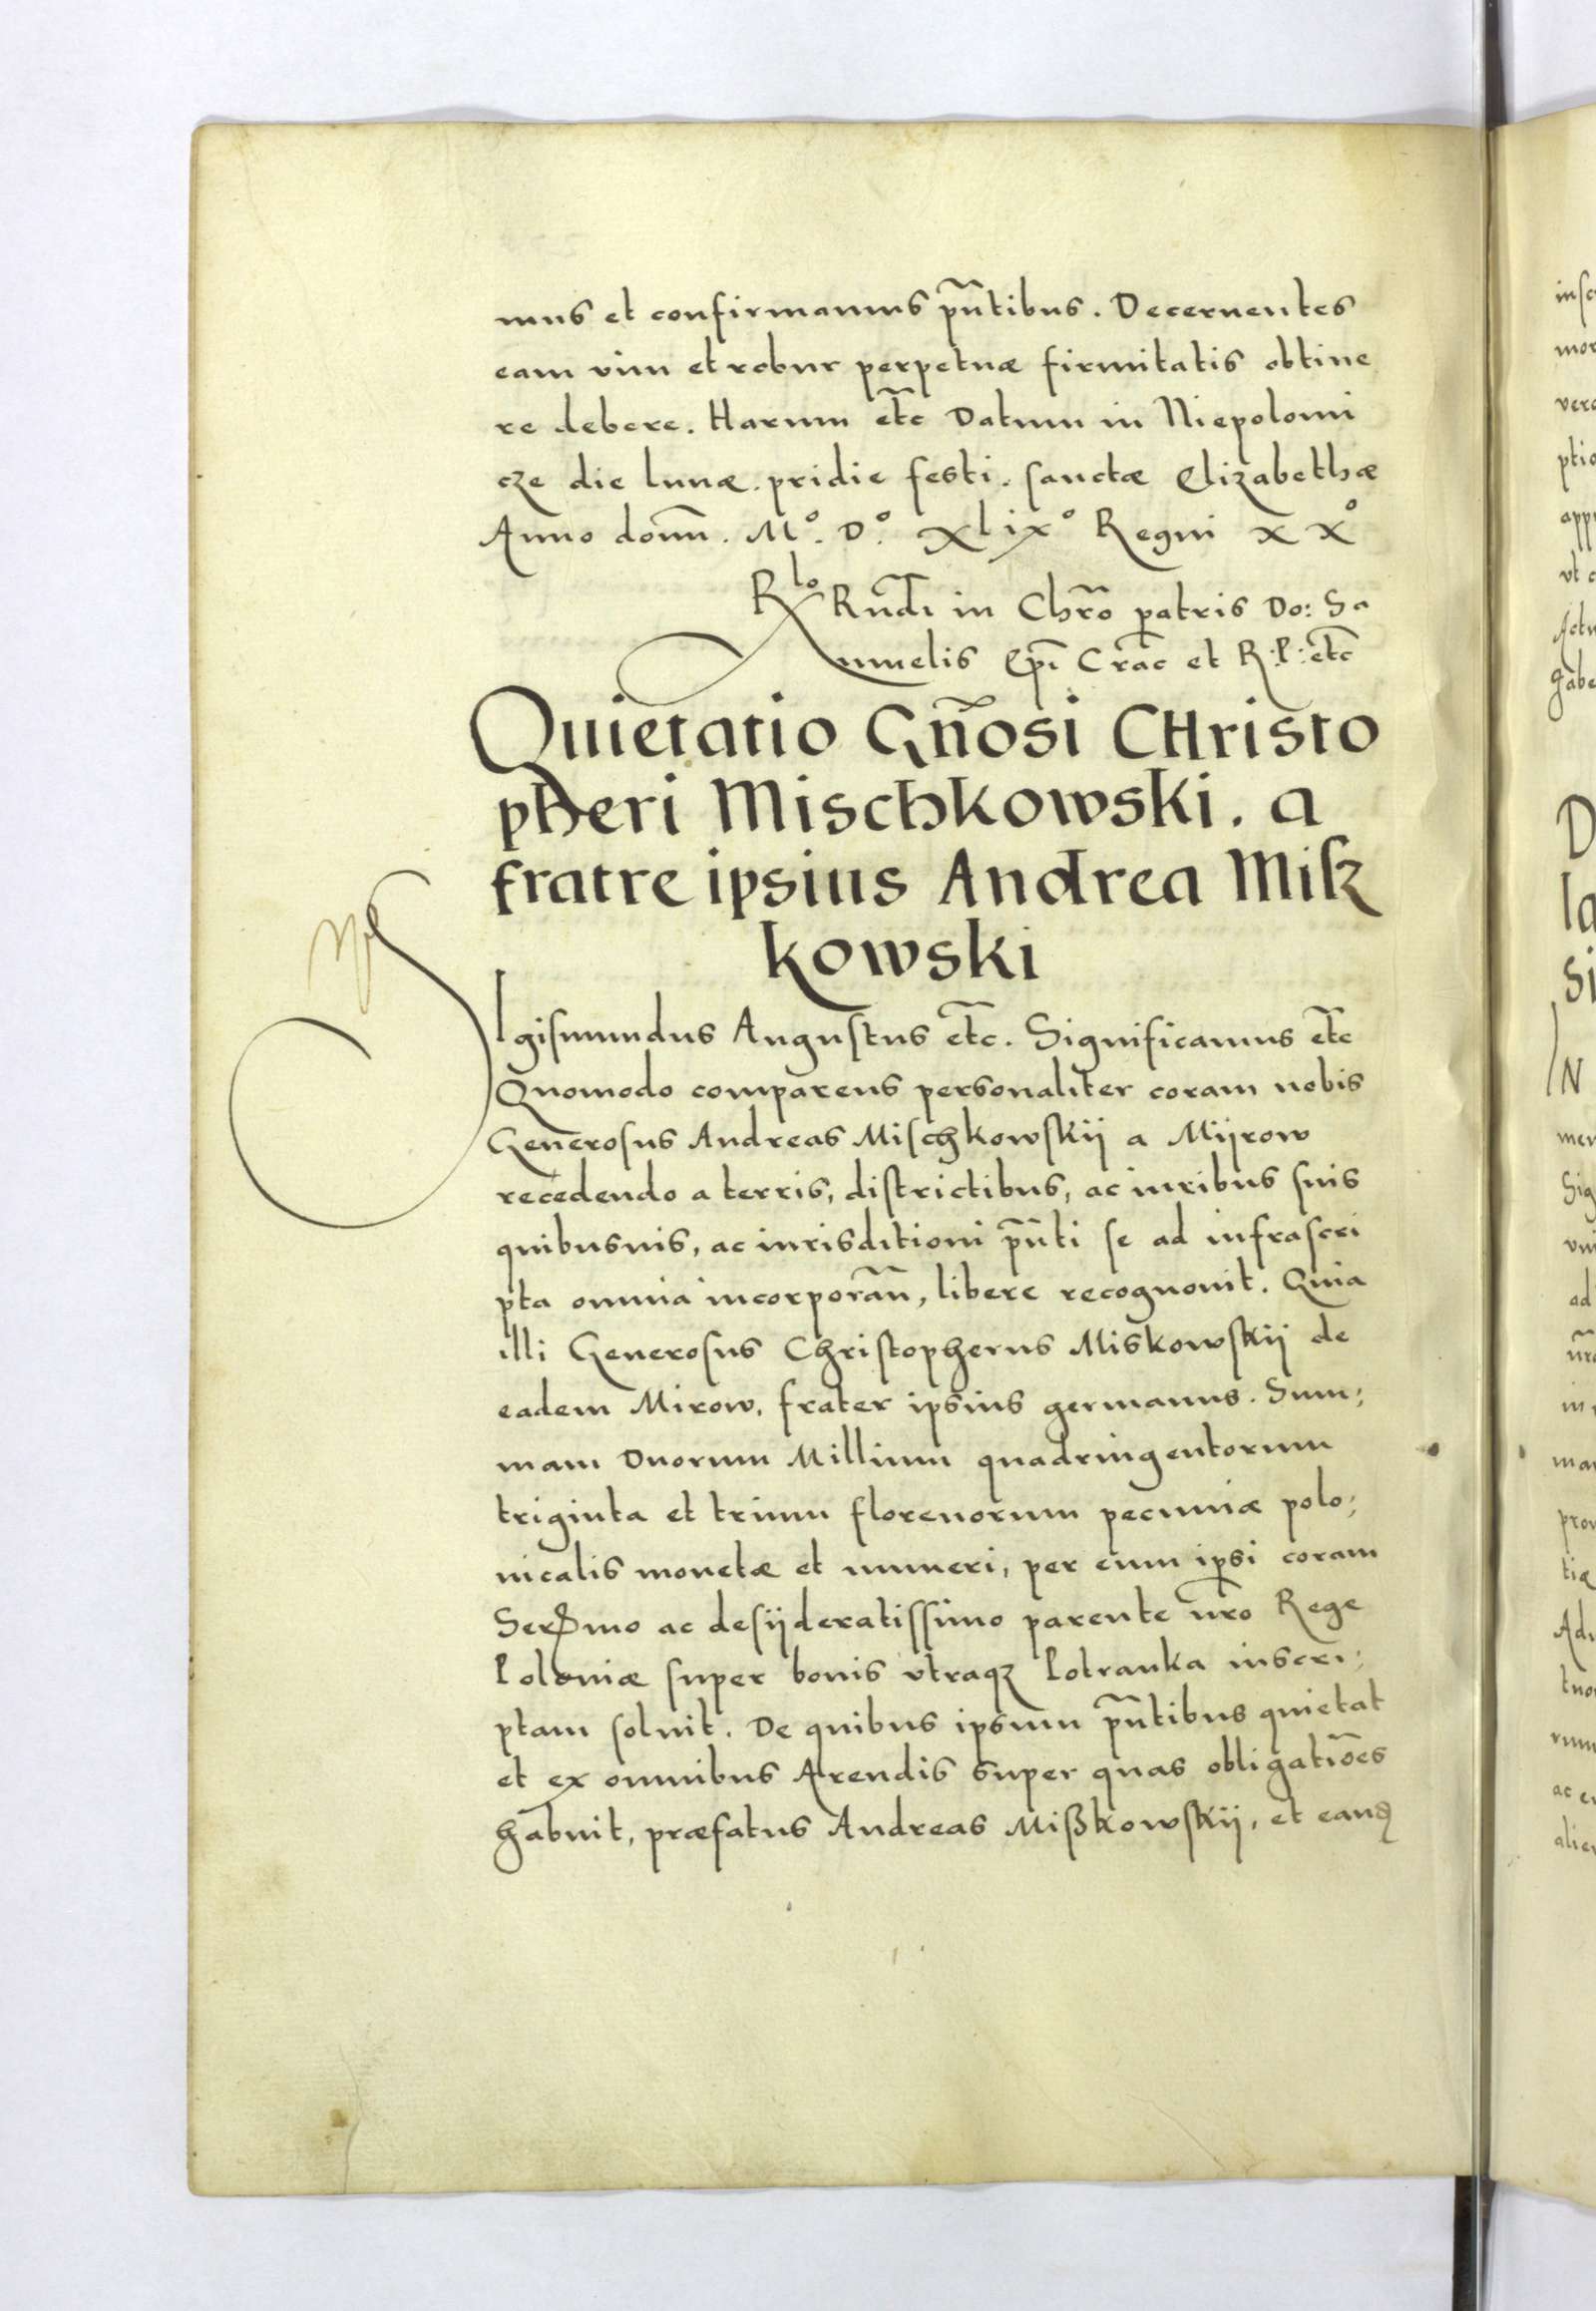 mus et confirmamus pñtibus. Decernentes
eam vim et robur perpetuæ firmitatis obtine
re debere. Harum et̃c Datum in Niepolomi
cze die lunæ. pridie festi. sanctæ Elizabethæ
Anno domñ. M°. D°. xlix° Regni xx°
Rlo Rñdi in Chrõ patris Do: Sa
muelis Epĩ Crãc et R: P: et̃c
Quietatio Gñosi CHristo
pheri Mischkowski. a
fratre ipsius Andrea Misz
kowski
Sigismundus Augustus et̃c. Significamus et̃c
Quomodo comparens personaliter coram nobis
Generosus Andreas Mischkowskij a Mijrow
recedendo a terris, districtibus, ac iuribus suis
quibusuis, ac iurisditioni pñti se ad infrascri
pta omnia incorporañ, libere recognouit. Quia
illi Generosus Christopherus Miskowskij de
eadem Mirow, frater ipsius germanus. Sum;
mam Duorum Millium quadringentorum
triginta et trium florenorum pecuniæ polo;
nicalis monetæ et numeri, per eum ipsi coram
Sermo ac desijderatissimo parente nr̃o Rege
Poloniæ super bonis vtraqz Potranka inscri;
ptam soluit. De quibus ipsum pñtibus quietat
et ex omnibus Arendis super quas obligatiões
habuit, præfatus Andreas Mißkowskij, et eand
inscr
mor
vero
ptio
app
vt c
Actu
gabe
D
la
Si
N
men
Sig
ad
in
man
prou
tiæ
Adu
tuor
rum
ac e
alien